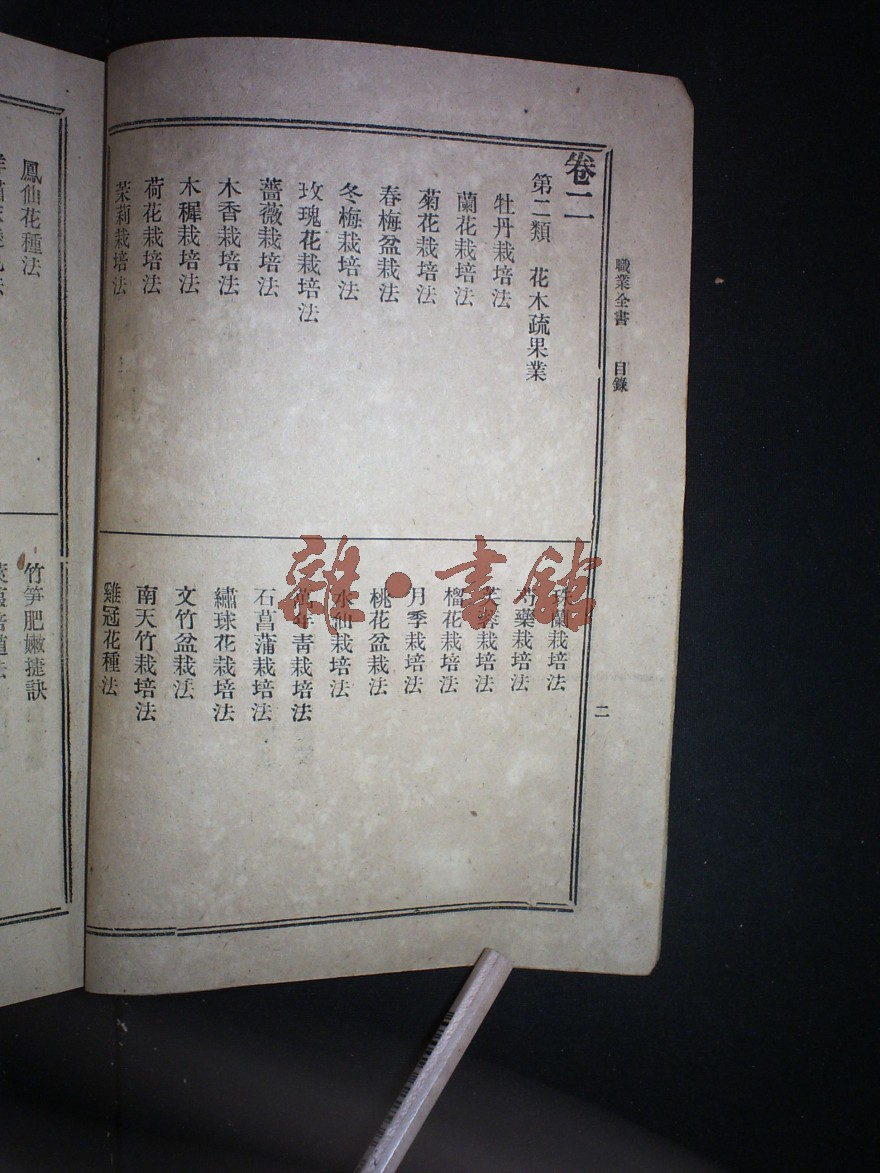 職業全書 目錄
二
卷二
第二類 花木疏果業
牡丹栽培法
蘭花栽培法
菊花栽培法
春梅盆栽法
冬梅栽培法
玫瑰花栽培法
薔薇栽培法
木香栽培法
木穉栽培法
荷花栽培法
茉莉栽培法
珠蘭栽培法
芍藥栽培法
芙蓉栽培法
榴花栽培法
月季栽培法
桃花盆栽法
水仙栽培法
萬年青栽培法
石菖蒲栽培法
繡球花栽培法
文竹盆栽法
南天竹栽培法
雞冠花種法
鳳仙花種法
竹笋肥嫩捷訣
雜·書館